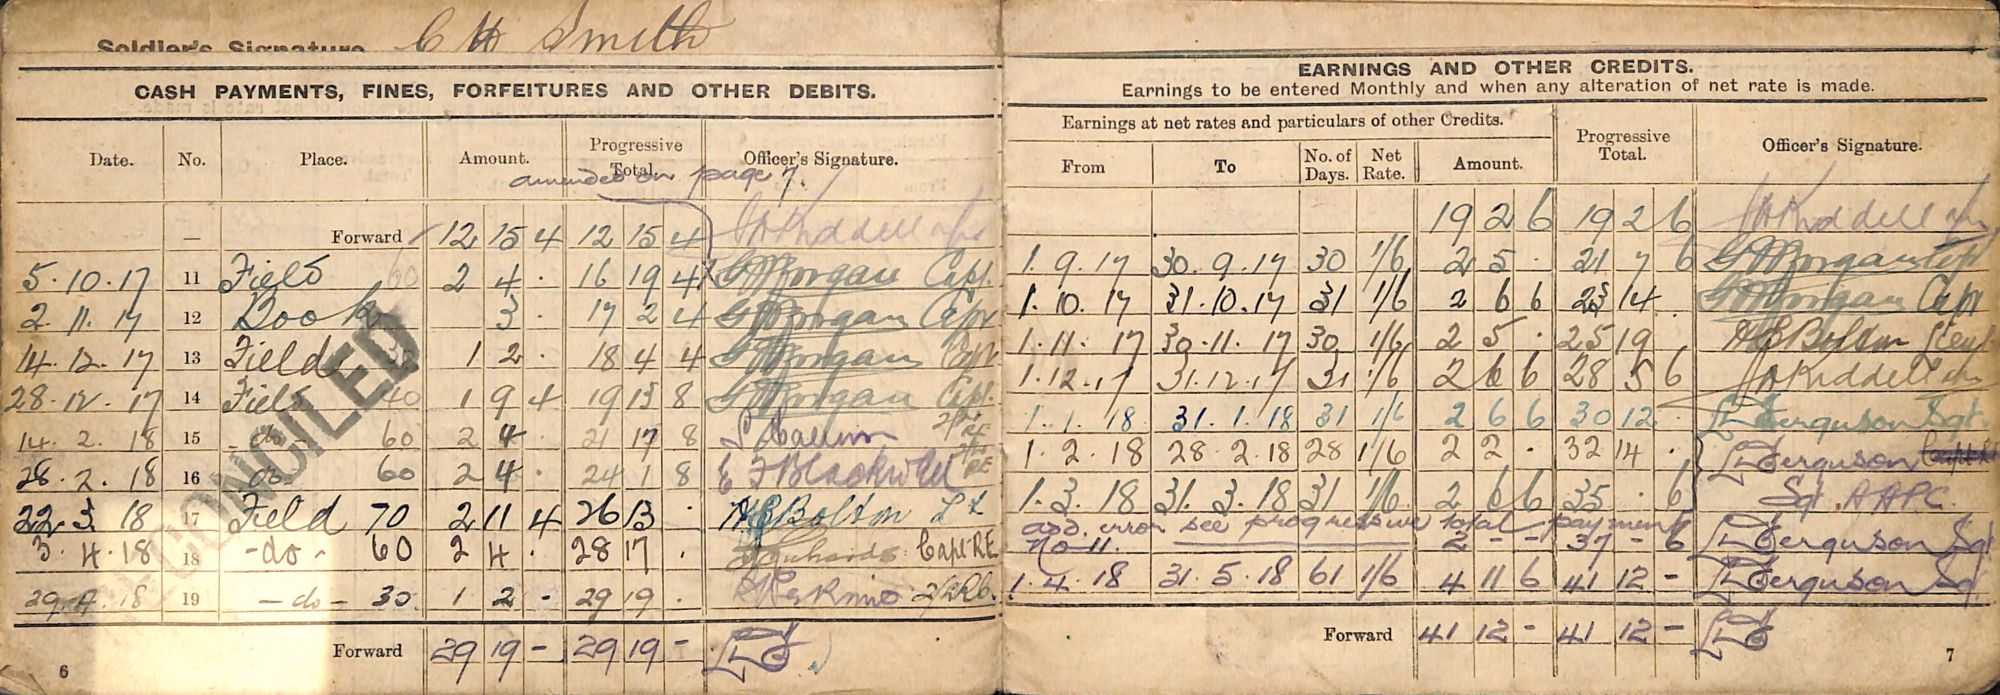 Soldier's Signature C H Smith
CASH PAYMENTS, FINES, FORFEITURES AND OTHER DEBITS.
Date. No. Place. Amount. Progressive Total. Officer's Signature.
amended on page 7.
— Forward 12 15 4 12 15 4
5.10.17 11 Field 60 2 4 . 16 19 4 G Morgan Capt.
2.11.17 12 Book 3 . 17 2 4 G Morgan Capt
14.12.17 13 Field 1 2 . 18 4 4 G Morgan Capt
28.12.17 14 Field 40 1 9 4 19 13 8 G Morgan Capt.
14.2.18 15 -do- 60 2 4 . 21 17 8
28.2.18 16 do. 60 2 4 . 24 1 8 E F Blackwell RE
22.3.18 17 Field 70 2 11 4 26 13 . H E Bolton Lt
3.4.18 18 -do- 60 2 4 . 28 17 . Capt RE
29.4.18 19 -do- 30 1 2 - 29 19 .
Forward 29 19 - 29 19 -
CONCILED
6
EARNINGS AND OTHER CREDITS.
Earnings to be entered Monthly and when any alteration of net rate is made.
Earnings at net rates and particulars of other Credits. Progressive Total. Officer's Signature.
From To No. of Days. Net Rate. Amount.
19 2 6 19 2 6
1.9.17 30.9.17 30 1/6 2 5 . 21 7 6 G Morgan Capt
1.10.17 31.10.17 31 1/6 2 6 6 23 14 . G Morgan Capt
1.11.17 30.11.17 30 1/6 2 5 . 25 19 . H E Bolton Lieut.
1.12.17 31.12.17 31 1/6 2 6 6 28 5 6
1.1.18 31.1.18 31 1/6 2 6 6 30 12 . Ferguson Sgt.
1.2.18 28.2.18 28 1/6 2 2 . 32 14 . Ferguson
1.3.18 31.3.18 31 1/6 2 6 6 35 . 6 Sgt. A.A.P.C.
add. error see progressive total payment
No 11. 2 - - 37 - 6 Ferguson Sgt
1.4.18 31.5.18 61 1/6 4 11 6 41 12 - Ferguson Sgt
Forward 41 12 - 41 12 -
7